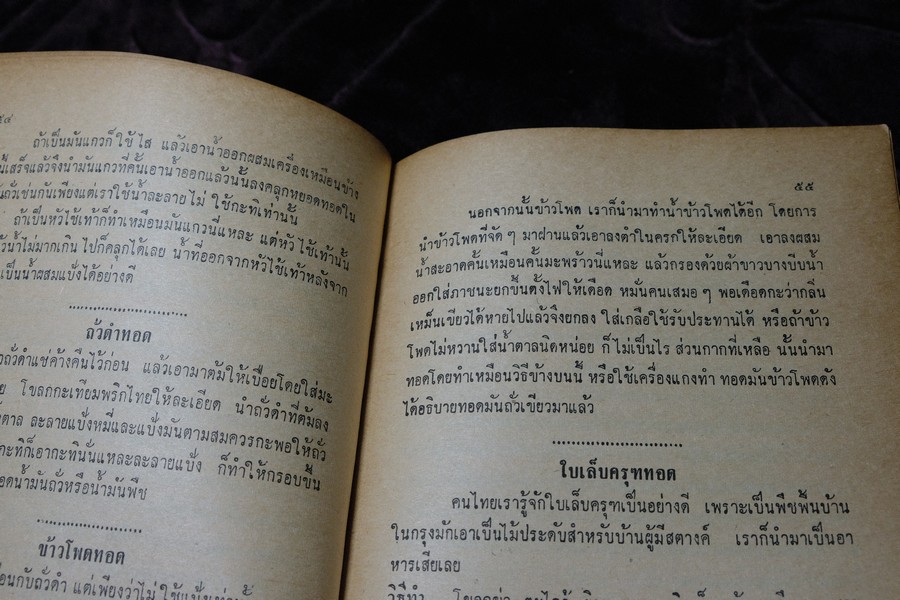 ๕๔
ถ้าเป็นมันแกวก็ใช้ไส แล้วเอาน้ำออกผสมเครื่องเหมือนข้าง
เสร็จแล้วจึงนำมันแกวที่คั้นเอาน้ำออกแล้วนั้นลงคลุกหยอดทอดใน
ถั่วเช่นกันเพียงแต่เราใช้น้ำละลายไม่ ใช้กะทิเท่านั้น
ถ้าเป็นหัวไช้เท้าก็ทำเหมือนมันแกวนี่แหละ แต่หัวไช้เท้านั้น
น้ำไม่มากเกิน ไปก็คลุกได้เลย น้ำที่ออกจากหัวไช้เท้าหลังจาก
เป็นน้ำผสมแป้งได้อย่างดี
ถั่วดำทอด
ถั่วดำแช่ค้างคืนไว้ก่อน แล้วเอามาต้มให้เปื่อยโดยใส่มะ
โขลกกะเทียมพริกไทยให้ละเอียด นำถั่วดำที่ต้มลง
ตาล ละลายแป้งหมี่และแป้งมันตามสมควรกะพอให้ถั่ว
กะทิก็เอากะทินั่นแหละละลายแป้ง ก็ทำให้กรอบขึ้น
น้ำมันถั่วหรือน้ำมันพืช
ข้าวโพดทอด
กับถั่วดำ แต่เพียงว่าไม่
๕๕
นอกจากนั้นข้าวโพด เราก็นำมาทำน้ำข้าวโพดได้อีก โดยการ
นำข้าวโพดที่จัด ๆ มาฝานแล้วเอาลงตำในครกให้ละเอียด เอาลงผสม
น้ำสะอาดคั้นเหมือนคั้นมะพร้าวนี่แหละ แล้วกรองด้วยผ้าขาวบางบีบน้ำ
ออกใส่ภาชนะยกขึ้นตั้งไฟให้เดือด หมั่นคนเสมอ ๆ พอเดือดกะว่ากลิ่น
เหม็นเขียวได้หายไปแล้วจึงยกลง ใส่เกลือใช้รับประทานได้ หรือถ้าข้าว
โพดไม่หวานใส่น้ำตาลนิดหน่อย ก็ไม่เป็นไร ส่วนกากที่เหลือ นั้นนำมา
ทอดโดยทำเหมือนวิธีข้างบนนี้ หรือใช้เครื่องแกงทำ ทอดมันข้าวโพดดัง
ได้อธิบายทอดมันถั่วเขียวมาแล้ว
ใบเล็บครุฑทอด
คนไทยเรารู้จักใบเล็บครุฑเป็นอย่างดี เพราะเป็นพืชพื้นบ้าน
ในกรุงมักเอาเป็นไม้ประดับสำหรับบ้านผู้มีสตางค์ เราก็นำมาเป็นอา
หารเสียเลย
วิธีทำ